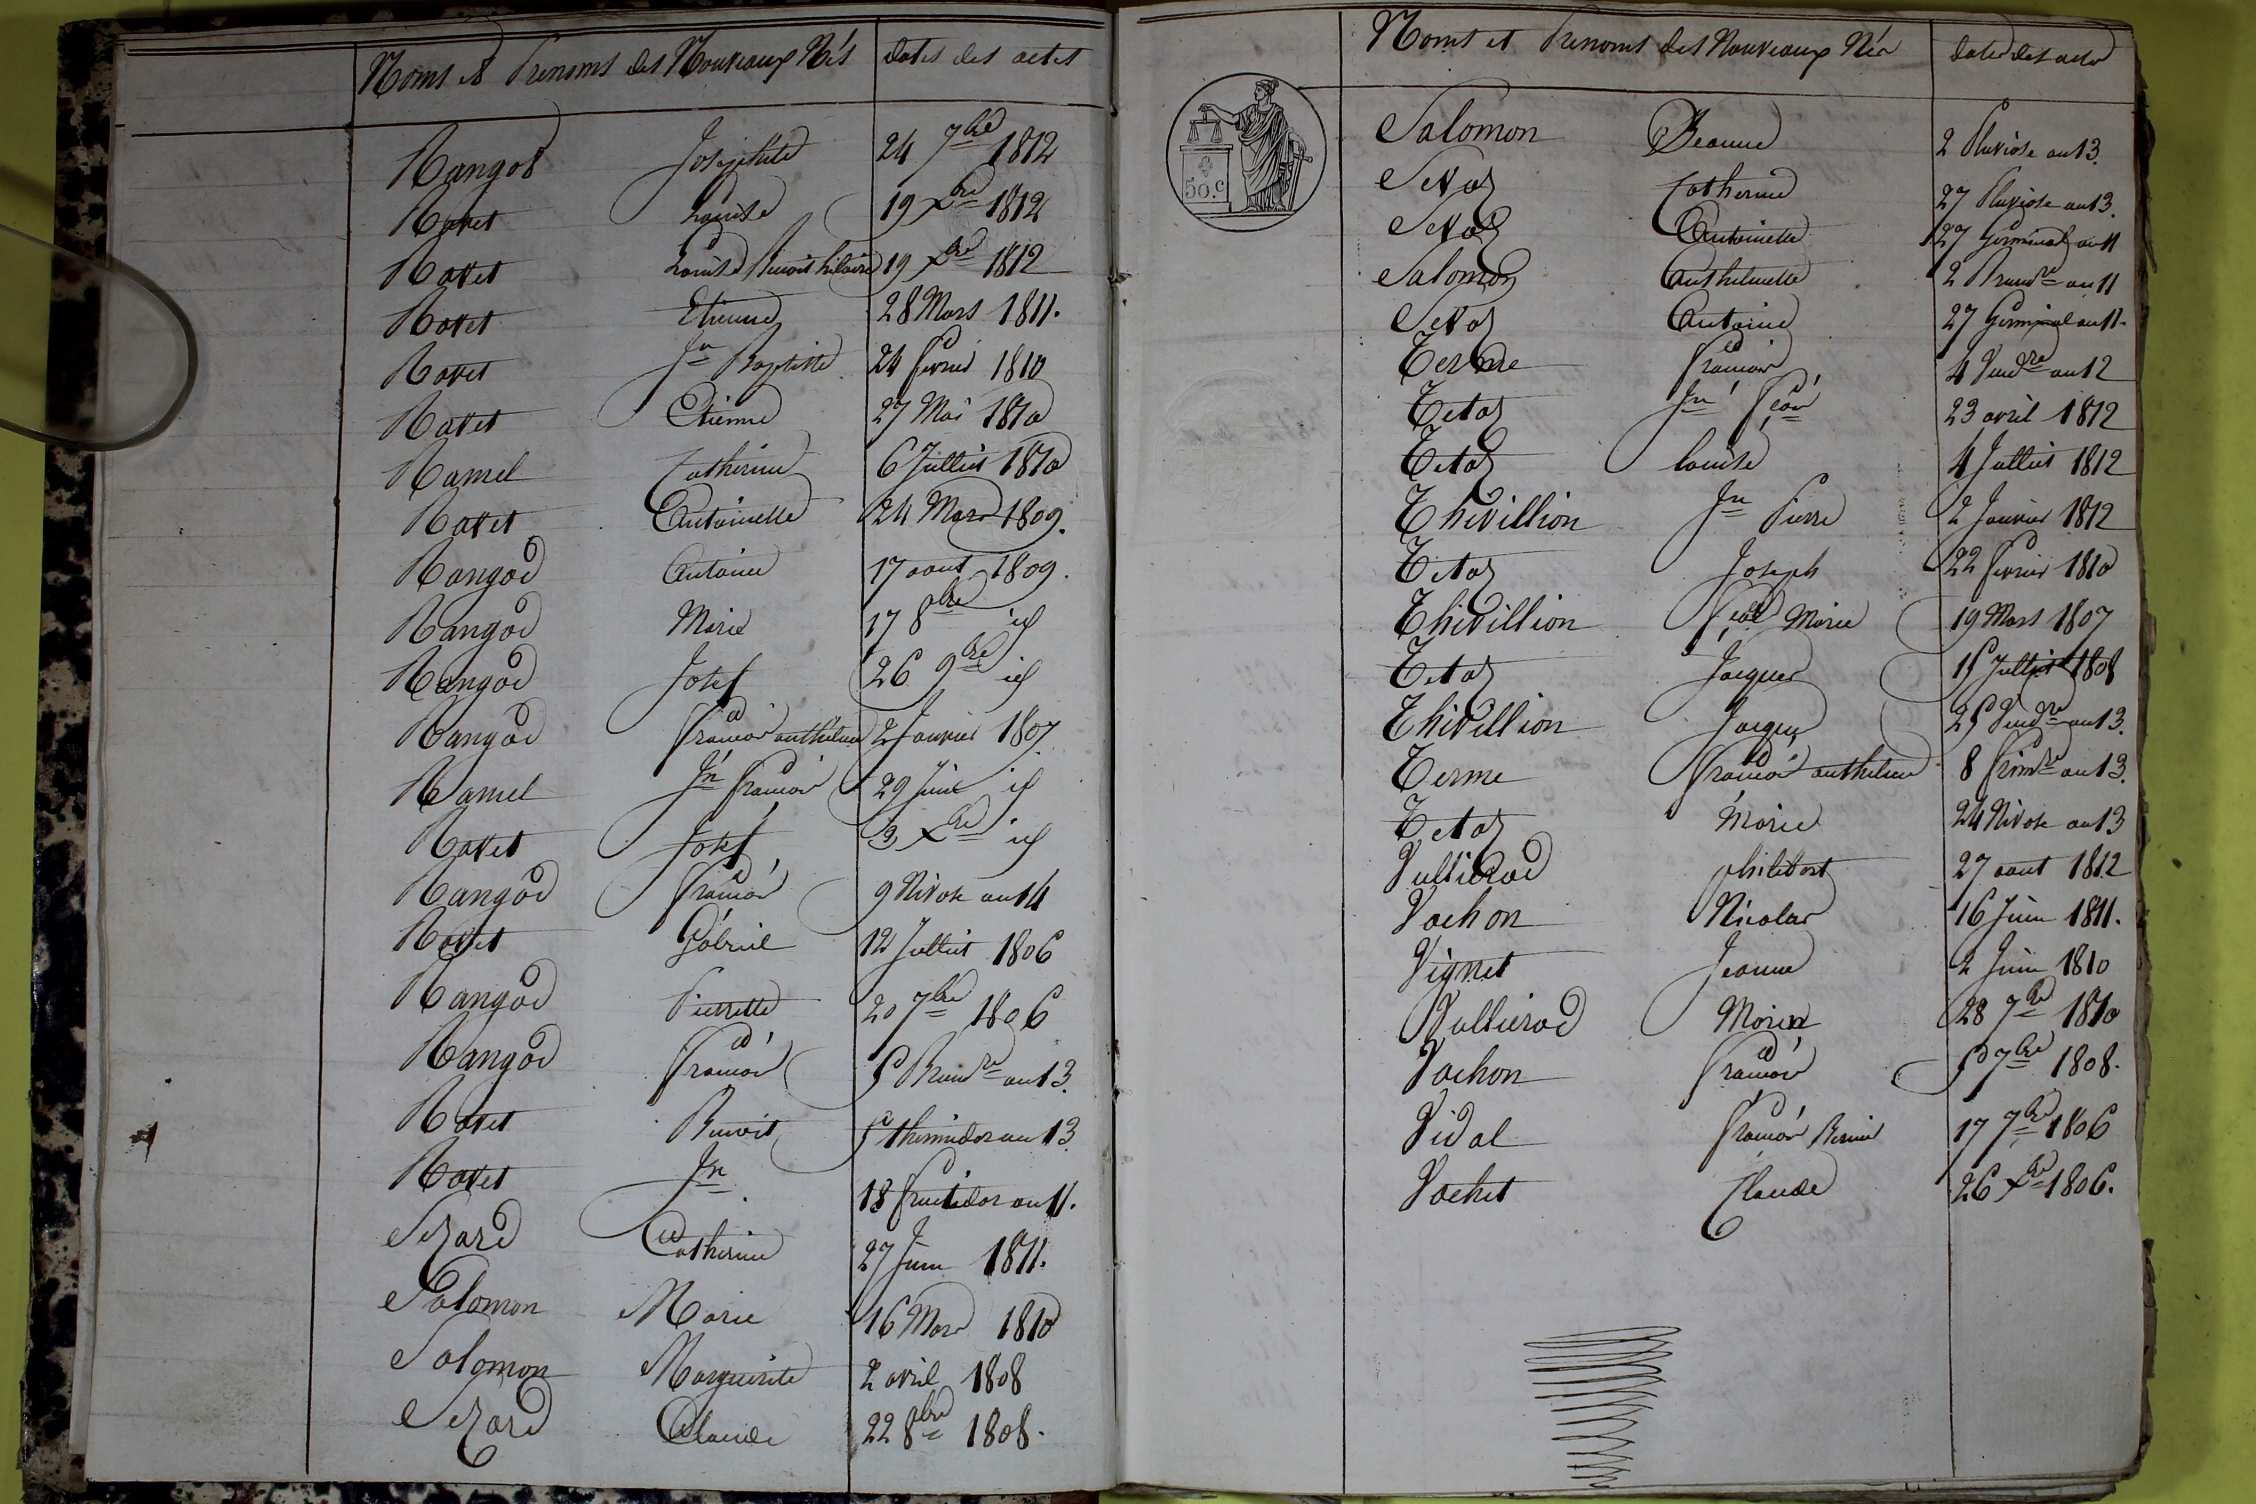 Noms et Prenoms des Nouveaux Nés dates des actes
Rangod Josephte 24 7bre 1812
Ravet Louise 19 Xbre 1812
Ravet Louise Benoit hilaire 19 Xbre 1812
Ravet Etienne 28 Mars 1811.
Ravet Jn Baptiste 24 fevrier 1810
Ravet Etienne 27 Mai 1810
Ramel Catherine 6 Juillet 1810
Ravet Antoinette 24 Mars 1809.
Rangod Antoine 17 aout 1809.
Rangod Marie 17 8bre id
Rangod Josef 26 9bre id
Rangod François anthelme 2 Janvier 1807.
Ramel Jn François 29 Juin id
Ravet Josef 3 Xbre id
Rangod François 9 Nivose an 14
Ravet Gabriel 12 Juillet 1806
Rangod Pierrette 20 7bre 1806
Rangod François 5 Brumre an 13.
Ravet Benoit 5 thermidor an 13
Ravet Jn 18 fructidor an 11.
Sezard Catherine 27 Juin 1811.
Salomon Marie 16 Mars 1810
Salomon Marguerite 2 avril 1808
Sezard Claude 22 8bre 1808.
Noms et Prenoms des Nouveaux Nés dates des actes
50.c
Salomon Jeanne 2 Pluviose an 13.
Sevoz Catherine 27 Pluviose an 13.
Sevoz Antoinette 27 Germinal an 11
Salomon Anthelmette 2 Brumre an 11
Sevoz Antoine 27 Germinal an 11.
Terme François 4 Vendre an 12
Tetaz Jn Fçois 23 avril 1812
Tetaz Louise 4 Juillet 1812
Thevillion Jn Pierre 2 Janvier 1812
Tetaz Joseph 22 fevrier 1810
Thevillion Marie 19 Mars 1807
Tetaz Jacques 15 Juillet 1808
Thevillion Jacques 25 Vendre an 13.
Terme François anthelme 8 frimre an 13.
Tetaz Marie 24 Nivose an 13
Vullierod philibert 27 aout 1812
Vachon Nicolas 16 Juin 1811.
Vignet Jeanne 2 Juin 1810
Vullierod Marie 28 7bre 1810
Vachon François 5 7bre 1808.
Vidal François 17 7bre 1806
Vachet Claude 26 Xbre 1806.